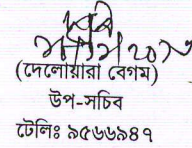 (দেলোয়ারা বেগম)
উপ-সচিব
টেলিঃ ৯৫৬৬৯৪৭